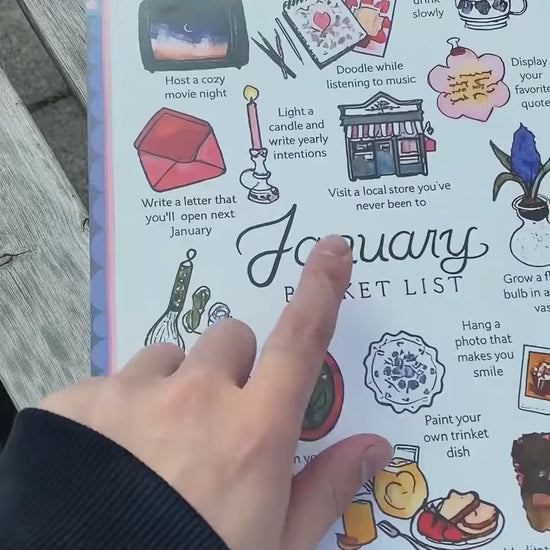 drink
slowly
Host a cozy
movie night
Doodle while
listening to music
Display
your
favorite
quote
Light a
candle and
write yearly
intentions
Write a letter that
you'll open next
January
Visit a local store you've
never been to
January
KET LIST
Grow a
bulb in a
vas
Hang a
photo that
makes you
smile
Paint your
own trinket
dish